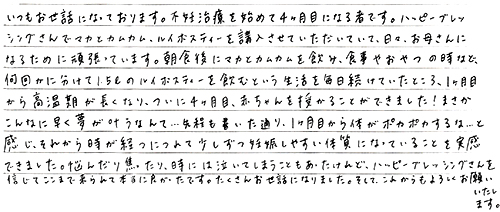 いつもお世話になっております。不妊治療を始めて4ヶ月目になる者です。ハッピーブレッ
シングさんでマカとカムカム、ルイボスティーを購入させていただいていて、日々、お母さんに
なるために頑張っています。朝食後にマカとカムカムを飲み、食事やおやつの時など、
何回かに分けて1.5ℓのルイボスティーを飲むという生活を毎日続けていたところ、1ヶ月目
から高温期が長くなり、ついに4ヶ月目、赤ちゃんを授かることができました!まさか
こんなに早く夢が叶うなんて…先程も書いた通り、1ヶ月目から体がポカポカするな…と
感じ、それから時が経つにつれて少しずつ妊娠しやすい体質になっていることを実感
できました。悩んだり焦ったり、時には泣いてしまうこともあったけれど、ハッピーブレッシングさんを
信じてここまで来られて本当に良かったです。たくさんお世話になりました。そして、これからもよろしくお願い
いたし
ます。